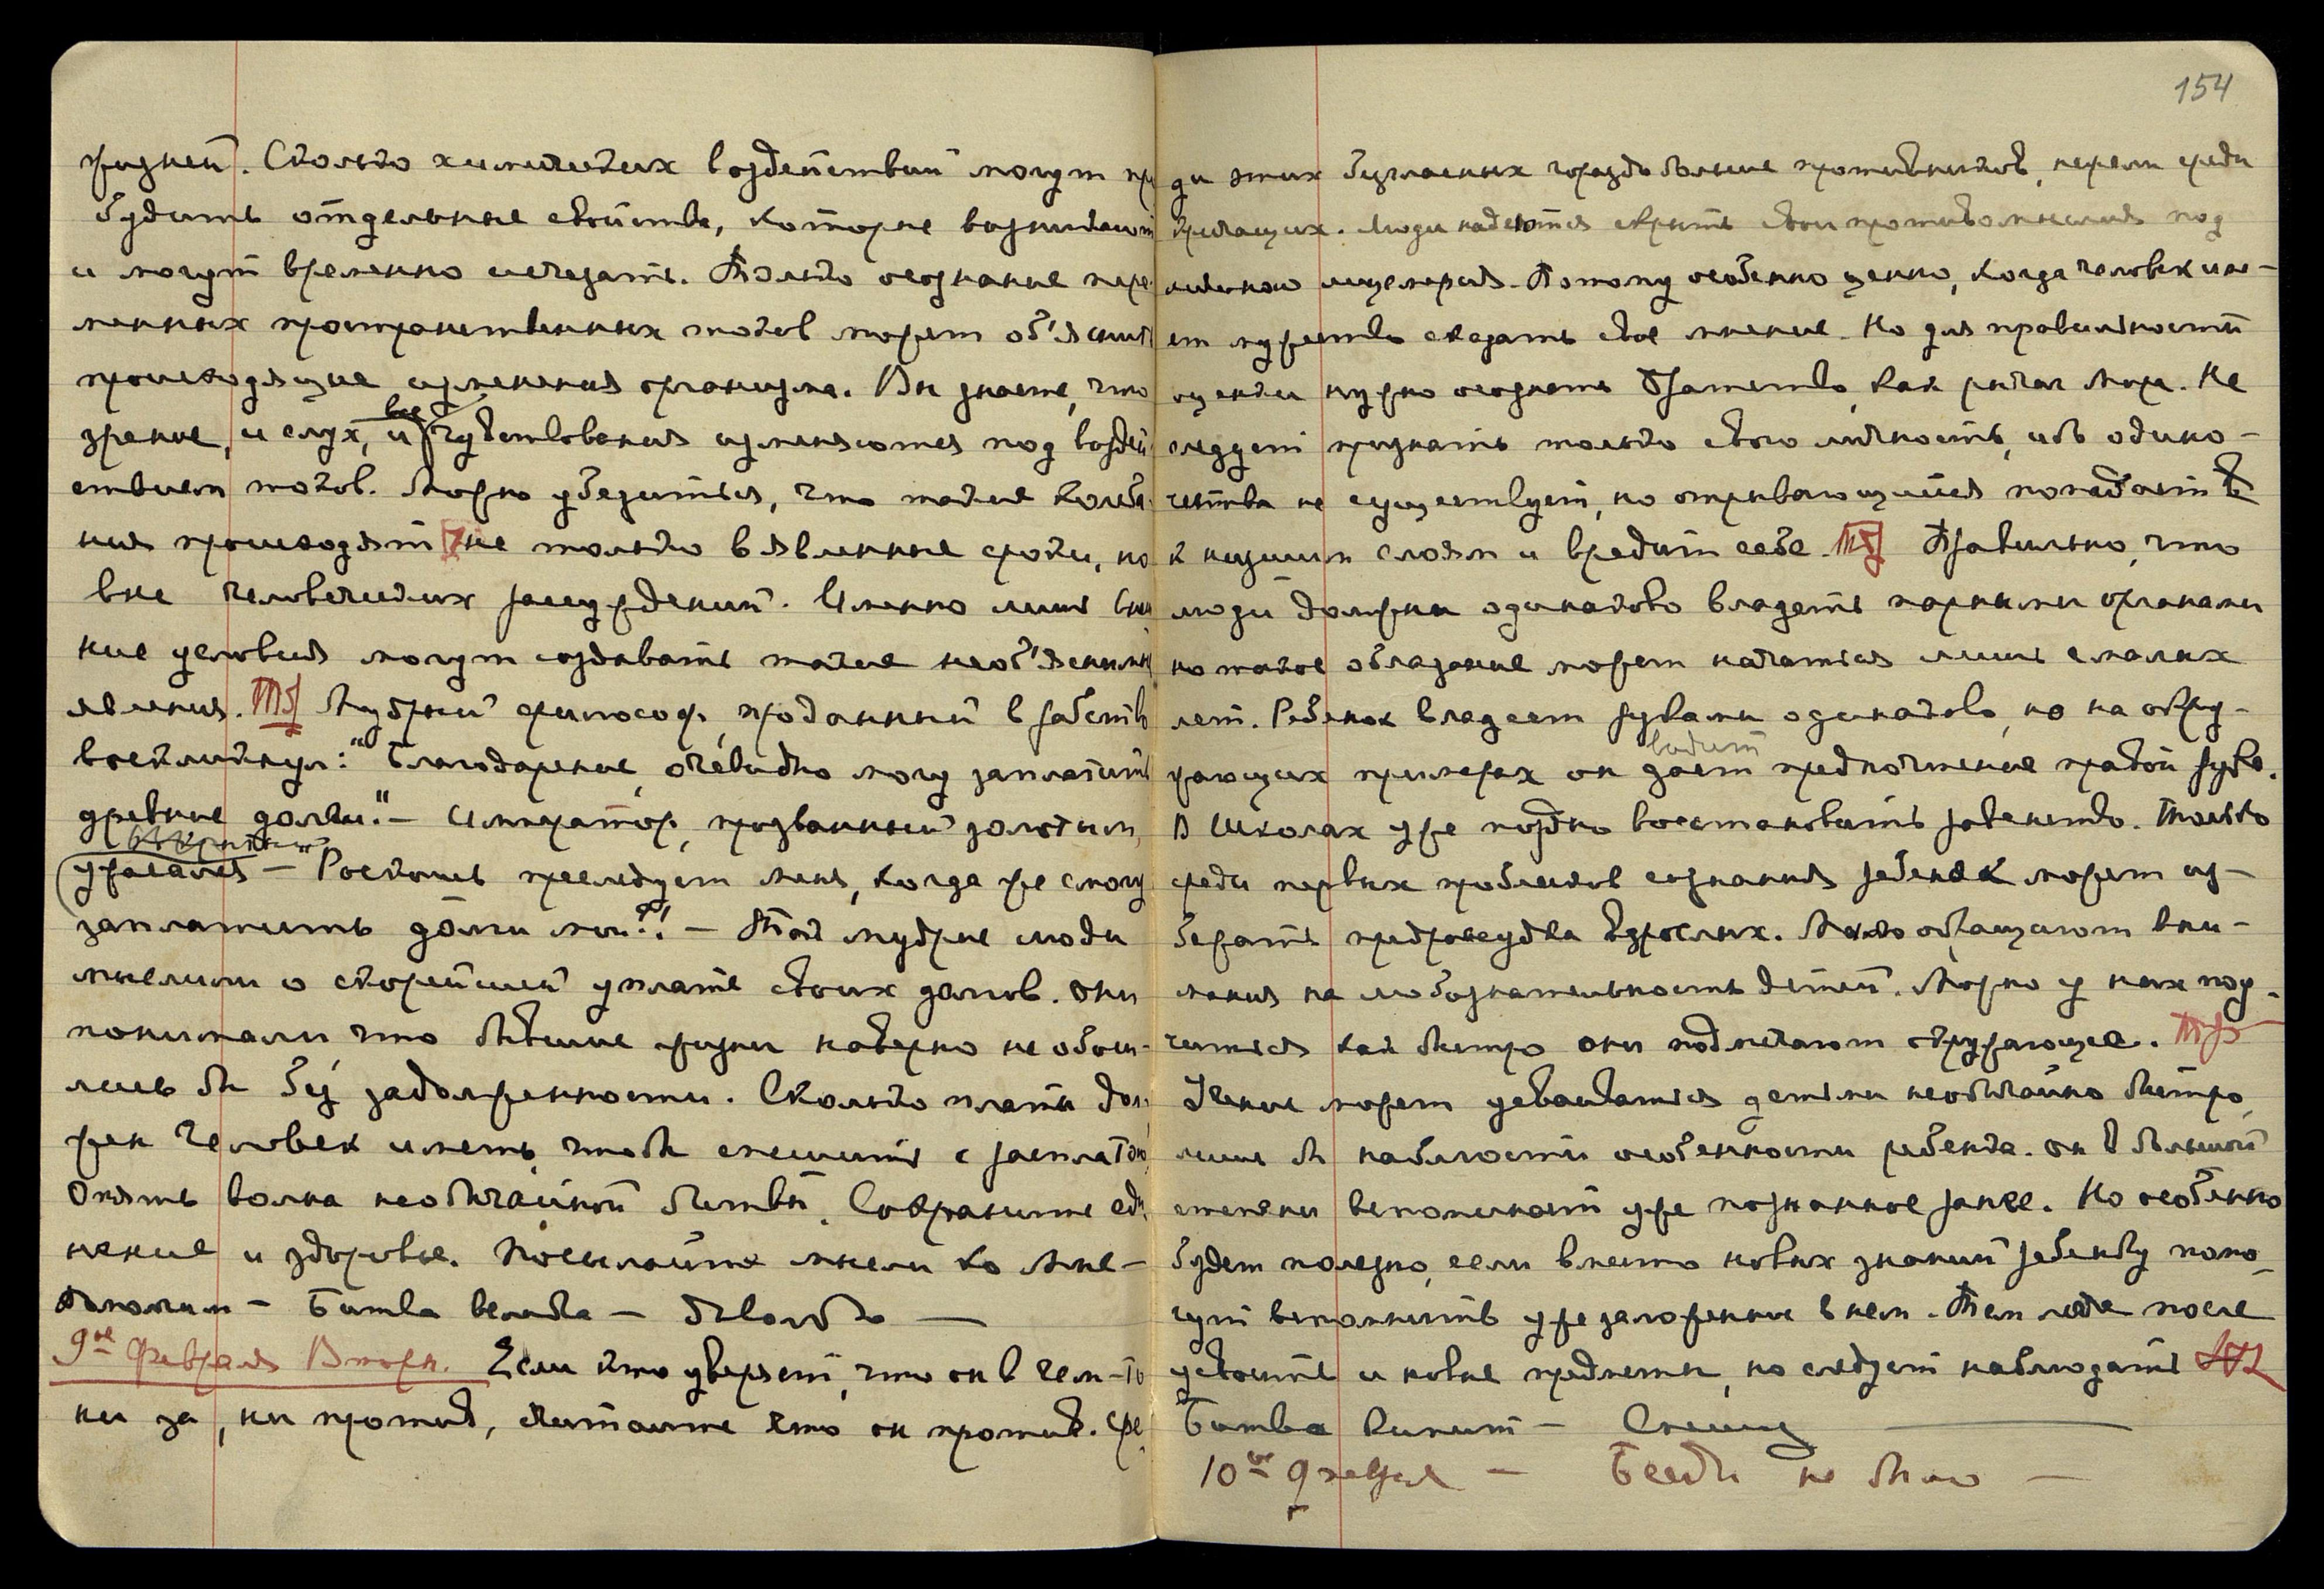 154
жизней. Сколько химических воздействий могут про
будить отдельные свойства, которые возникают
и могут временно исчезать. Только осознание пере
менных пространственных токов может об'яснить
происходящие изменения организма. Вы знаете, что
все
зрение, и слух, и чувствования изменяются под воздей
ствием токов. Можно убедиться, что такие колеба
ния происходят не только в явленные сроки, но
вне человеческих рассуждений. Именно лишь внеш
ние условия могут создавать такие необ'яснимые
явления. Мудрый философ, проданный в рабство
воскликнул: "Благодарение, очевидно могу заплатить
древние долги." — Император, прозванный золотым,
ужасался — "Роскошь преследует меня, когда же смогу
заплатить долги мои?! — Так мудрые люди
мыслили о скорейшей уплате своих долгов. Они
понимали что бывшие жизни наверно не обош-
лись бы без задолженности. Сколько платы дол
жен человек иметь, чтобы спешить с расплатою.
Опять волна необычайной битвы. Сохраните еди
нение и здоровье. Посылайте мысли ко Мне —
Поможем — Битва велика — Довольно —
9ое Февраля Вторн. Если кто уверяет, что он в чем-то
ни за, ни против, считайте что он против. Сре
ди этих безгласных гораздо больше противников, нежели среди
кричащих. Люди надеются скрыть свои противомыслия под
личиною лицемерия. Потому особенно ценно, когда человек име-
ет мужество сказать свое мнение. Но для правильности
оценки нужно осознать Братство, как рычаг Мира. Не
следует признать только свою личность, ибо одино-
чества не существует, но отрывающийся попадает
к низшим слоям и вредит себе. Правильно, что
люди должны одинаково владеть парными органами
но такое обладание может начаться лишь с малых
лет. Ребенок владеет руками одинаково, но на окру-
видит
жающих примерах он дает предпочтение правой руке.
В школах уже поздно восстановить равенство. Только
среди первых проблесков сознания ребенок может из-
бегать предрассудка взрослых. Мало обращают вни-
мания на любознательность детей. Можно у них поу-
читься как быстро они подмечают окружающее.
Учение может усваиваться детьми необычайно быстро,
лишь бы наблюсти особенности ребенка. Он в большой
степени вспоминает уже познанное ранее. Но особенно
будет полезно, если вместо новых знаний ребенку помо-
гут вспомнить уже заложенное в нем. Тем легче после
усвоить и новые предметы, но следует наблюдать
Битва кипит — Спешу —
10ое Февраля — Беседы не было —